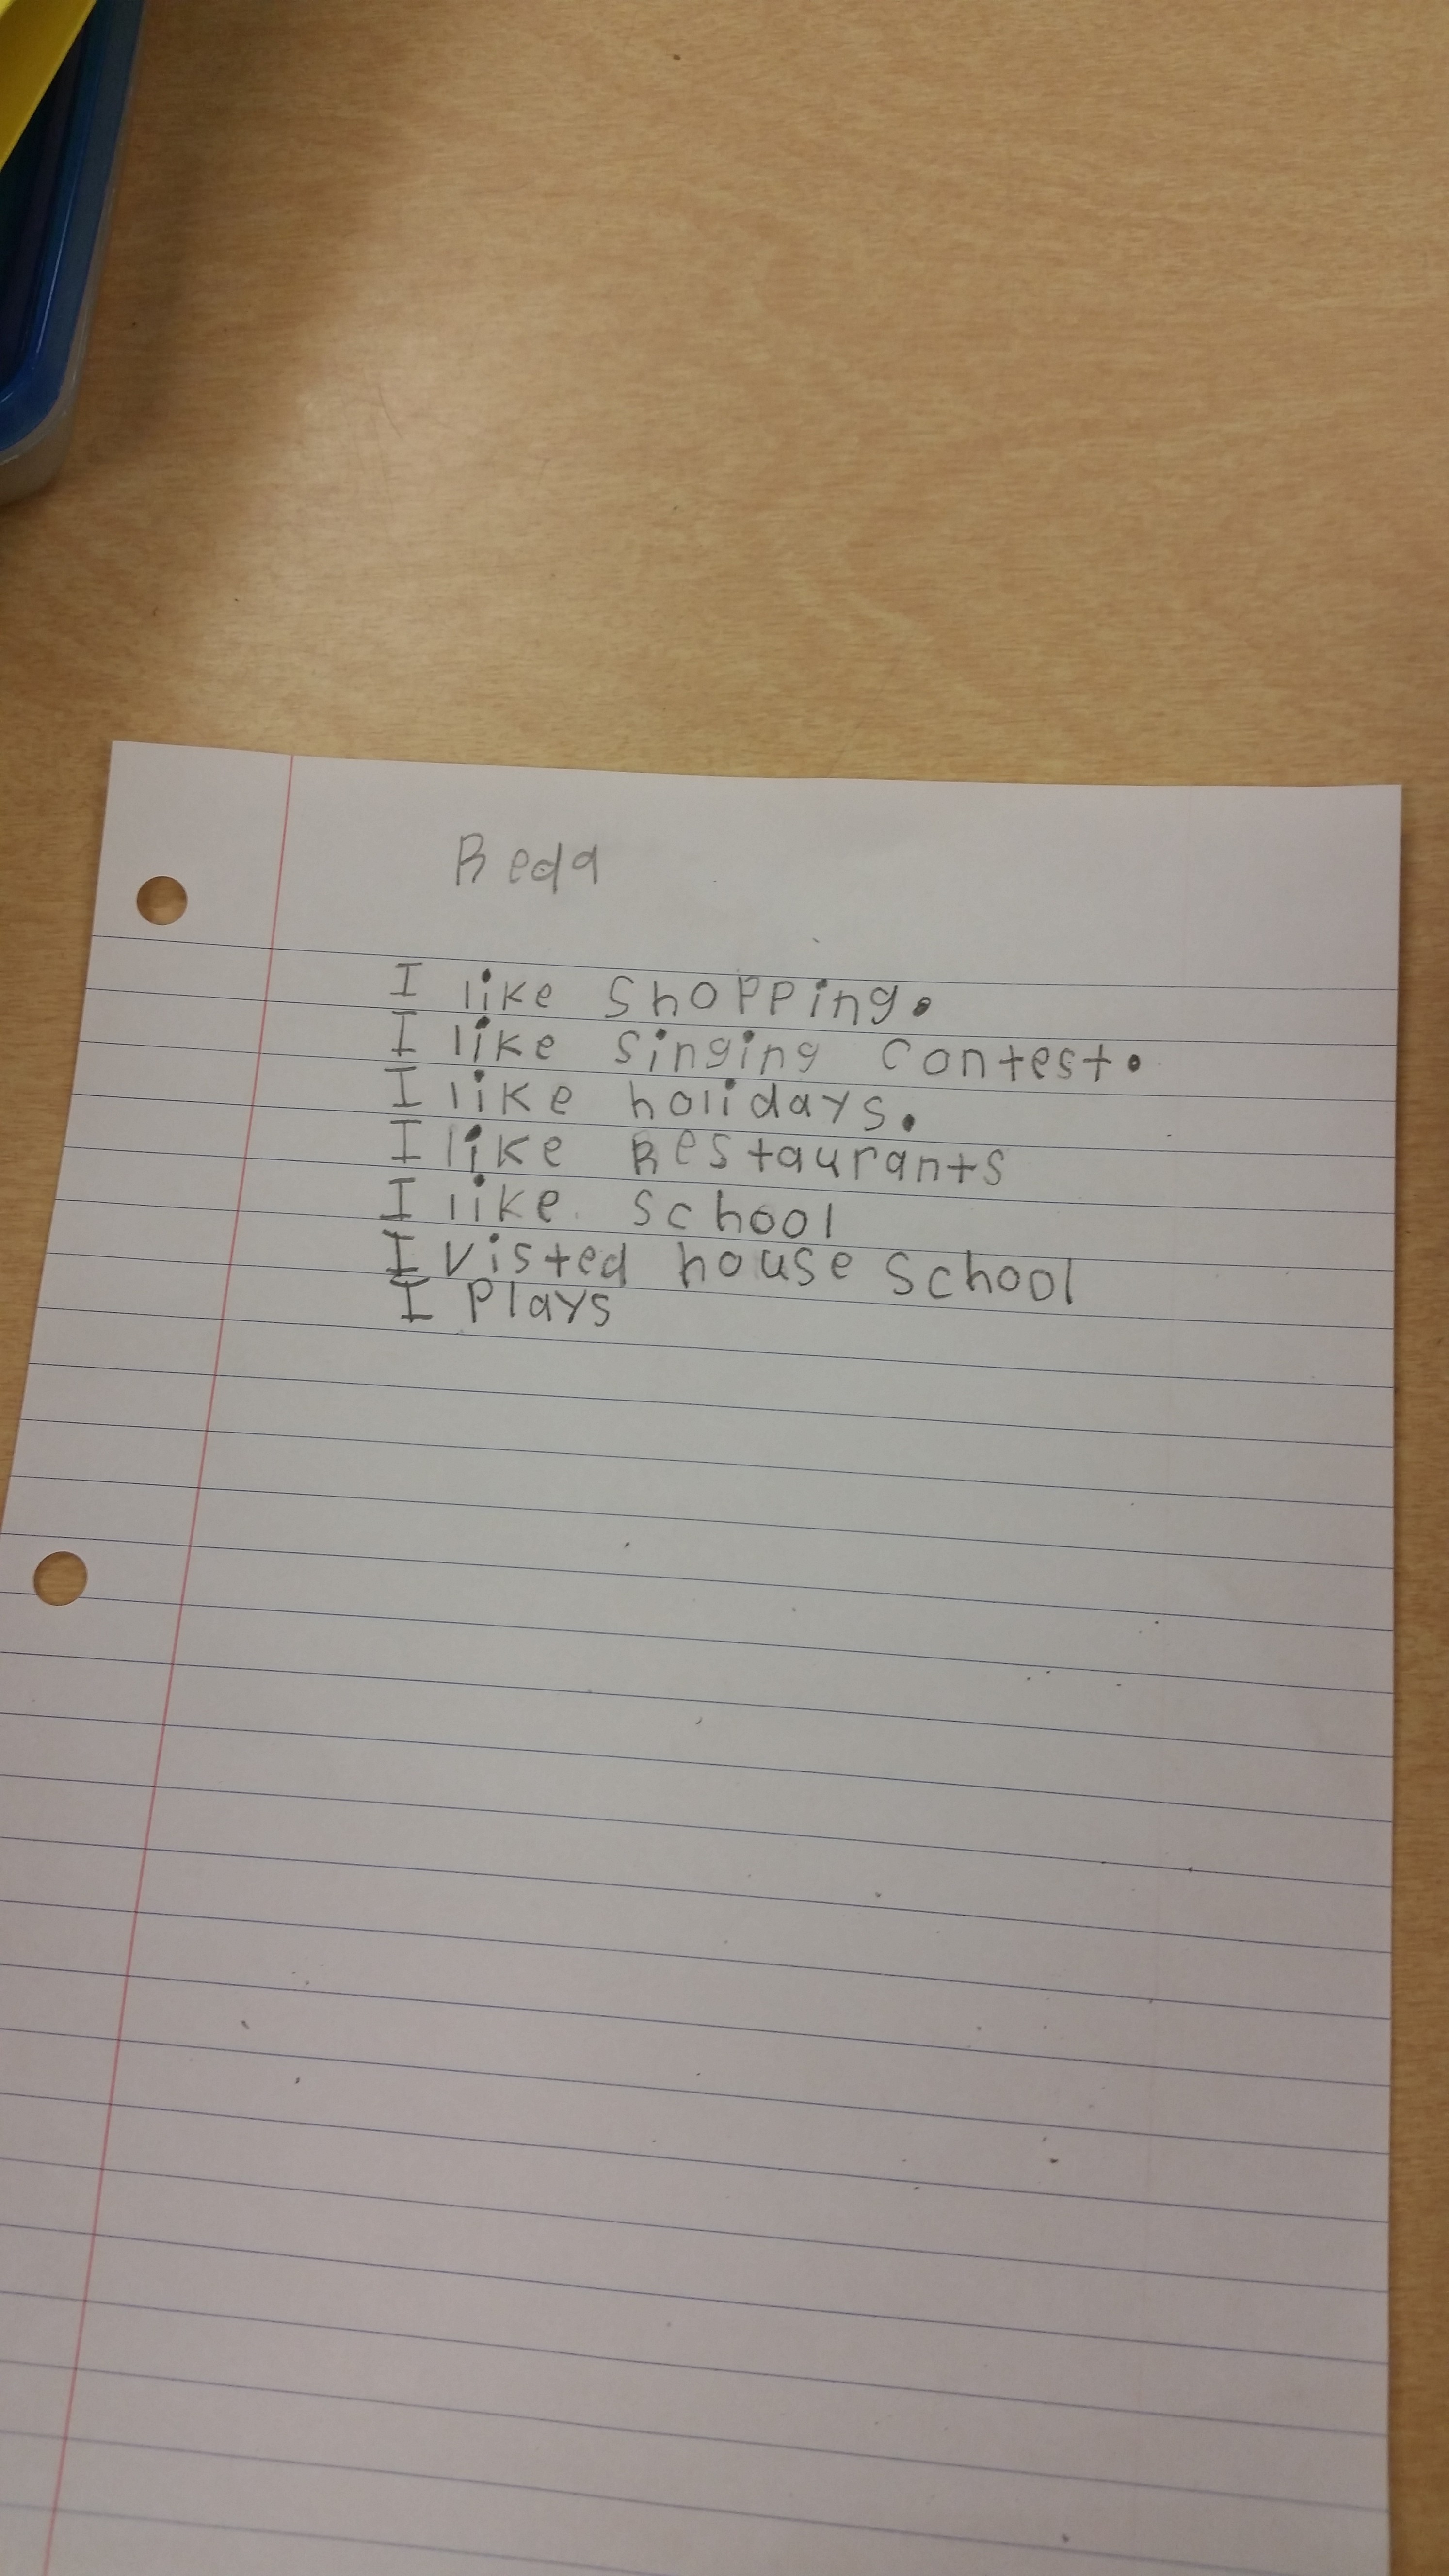 Reda
I like Shopping.
I like singing contest.
I like holidays.
I like Restaurants
I like school
I visted house school
I Plays